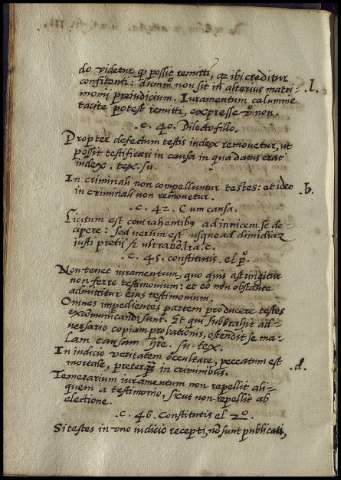 do videtur q̃ possit remitti, qᵉ ibi creditur
confitenti: dummo non sit in alterius matri-
monij preiudicium. Iuramentum calumnie
tacite potest remitti, expresse vᵒ non.
.1.
.c. 40. Dilecto filio.
Propter defectum testis iudex remouetur, ut
possit testificari in causa in qua datus erat
iudex. tex. su.
In criminali non compelluntur testes: et ideo
in criminali non remouetur.
.b.
.c. 42. Cum causa.
Licitum est contrahentibus ad inuicem se de-
cipere: sed verum est usque ad dimidiam
iusti pretij
.c. 45. constitutis. el p̊.
Non tenet iuramentum, quo quis astringitur
non ferre testimonium: et eo non obstante
admittitur eius testimonium.
Omnes impedientes partem producere testes
excommunicandi sunt. Et qui subtrahit ad-
uersario copiam probationis, ostendit se ma-
lam causam h̃re. su. tex.
In iudicio veritatem occultare, peccatum est
mortale, preterq̃ in criminibus.
.d.
Temerarium iuramentum non repellit ali-
quem a testimonio, sicut non repellit ab
electione.
.c. 46. Constitutis el 2º.
Si testes in vno iudicio recepti, nõ sunt publicati,